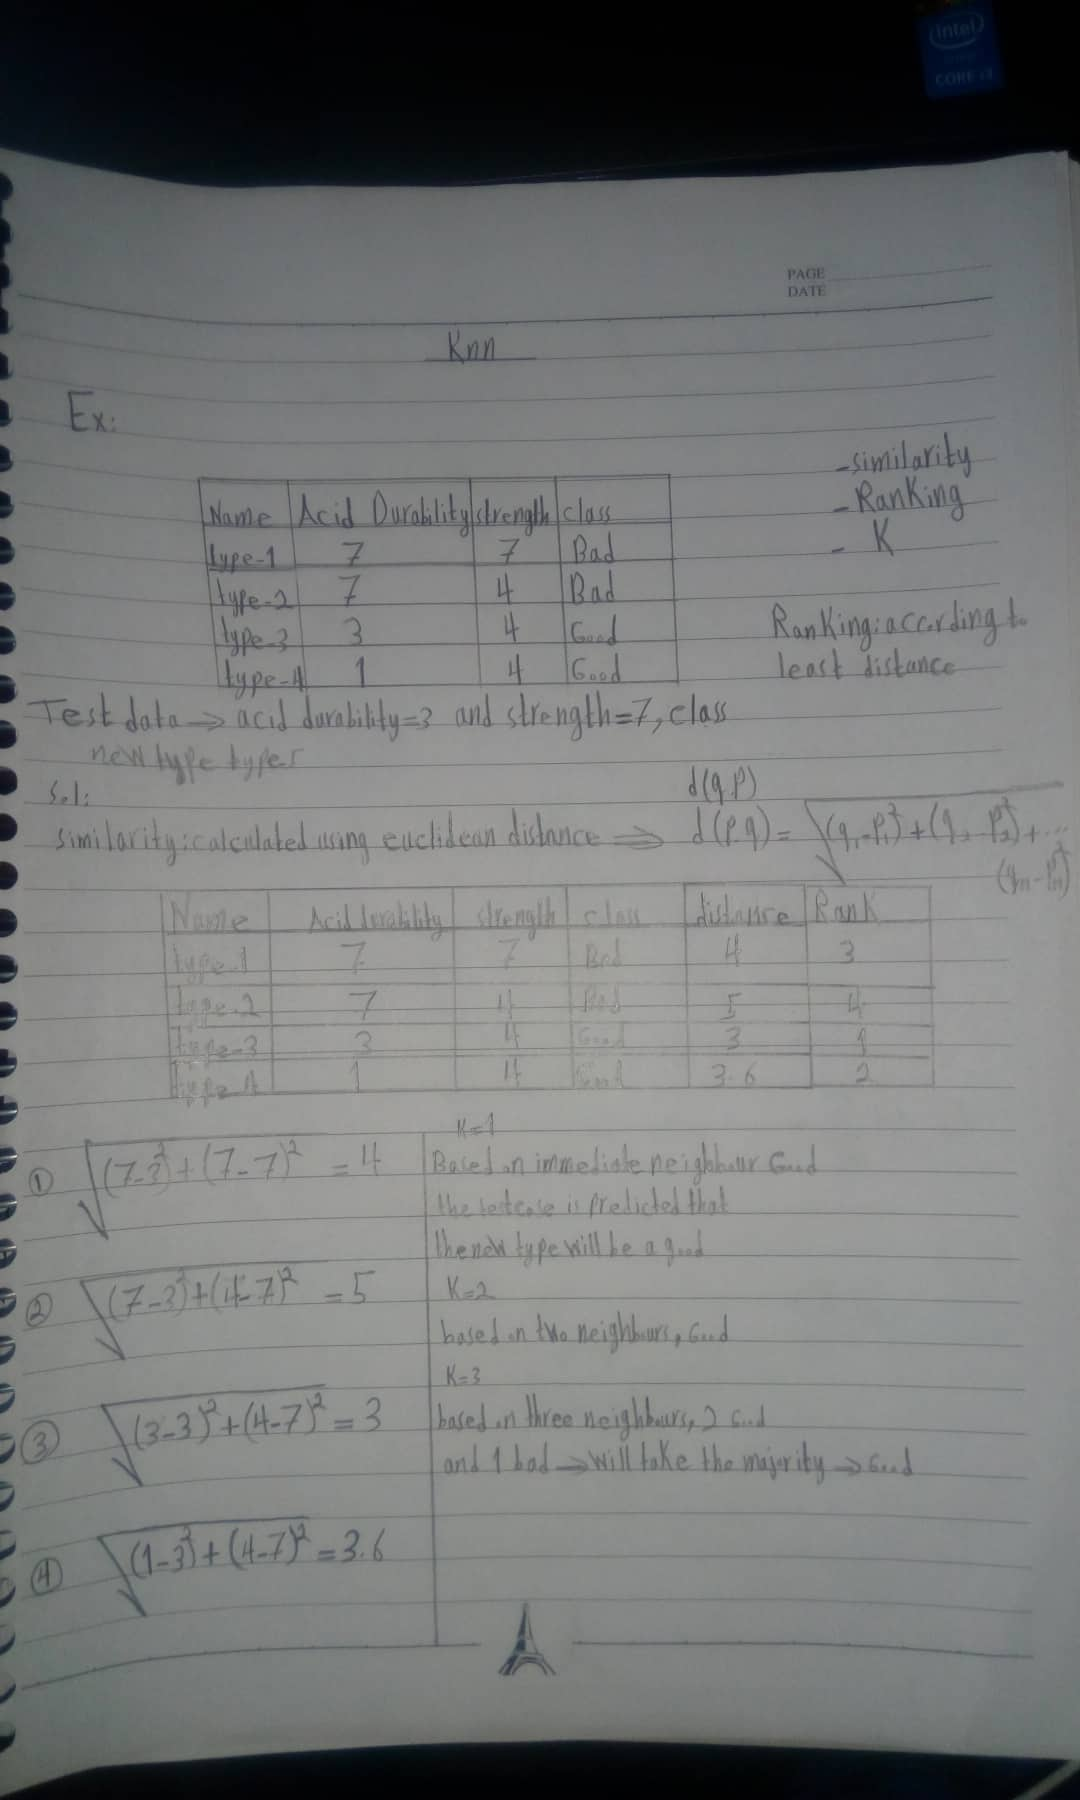 intel
CORE i3
PAGE
DATE
Knn
Ex:
-similarity
-Ranking
- K
Name | Acid Durability | strength | class
type-1 | 7 | 7 | Bad
type-2 | 7 | 4 | Bad
type-3 | 3 | 4 | Good
type-4 | 1 | 4 | Good
Ranking: according to
least distance
Test data → acid durability=3 and strength=7, class
new type types
Sol:
d(q,p)
similarity: calculated using euclidean distance ⇒ d(p,q) = √(q₁-p₁)²+(q₂-p₂)²+...
(qn-pn)²
Name | Acid durability | strength | class | distance | Rank
type-1 | 7 | 7 | Bad | 4 | 3
type-2 | 7 | 4 | Bad | 5 | 4
type-3 | 3 | 4 | Good | 3 | 1
type-4 | 1 | 4 | Good | 3.6 | 2
① √(7-3)²+(7-7)² = 4
② √(7-3)²+(4-7)² = 5
③ √(3-3)²+(4-7)² = 3
④ √(1-3)²+(4-7)² = 3.6
K=1
Based on immediate neighbour Good
the testcase is predicted that
the new type will be a good
K=2
based on two neighbours, Good
K=3
based on three neighbours, 2 Good
and 1 bad → will take the majority → Good